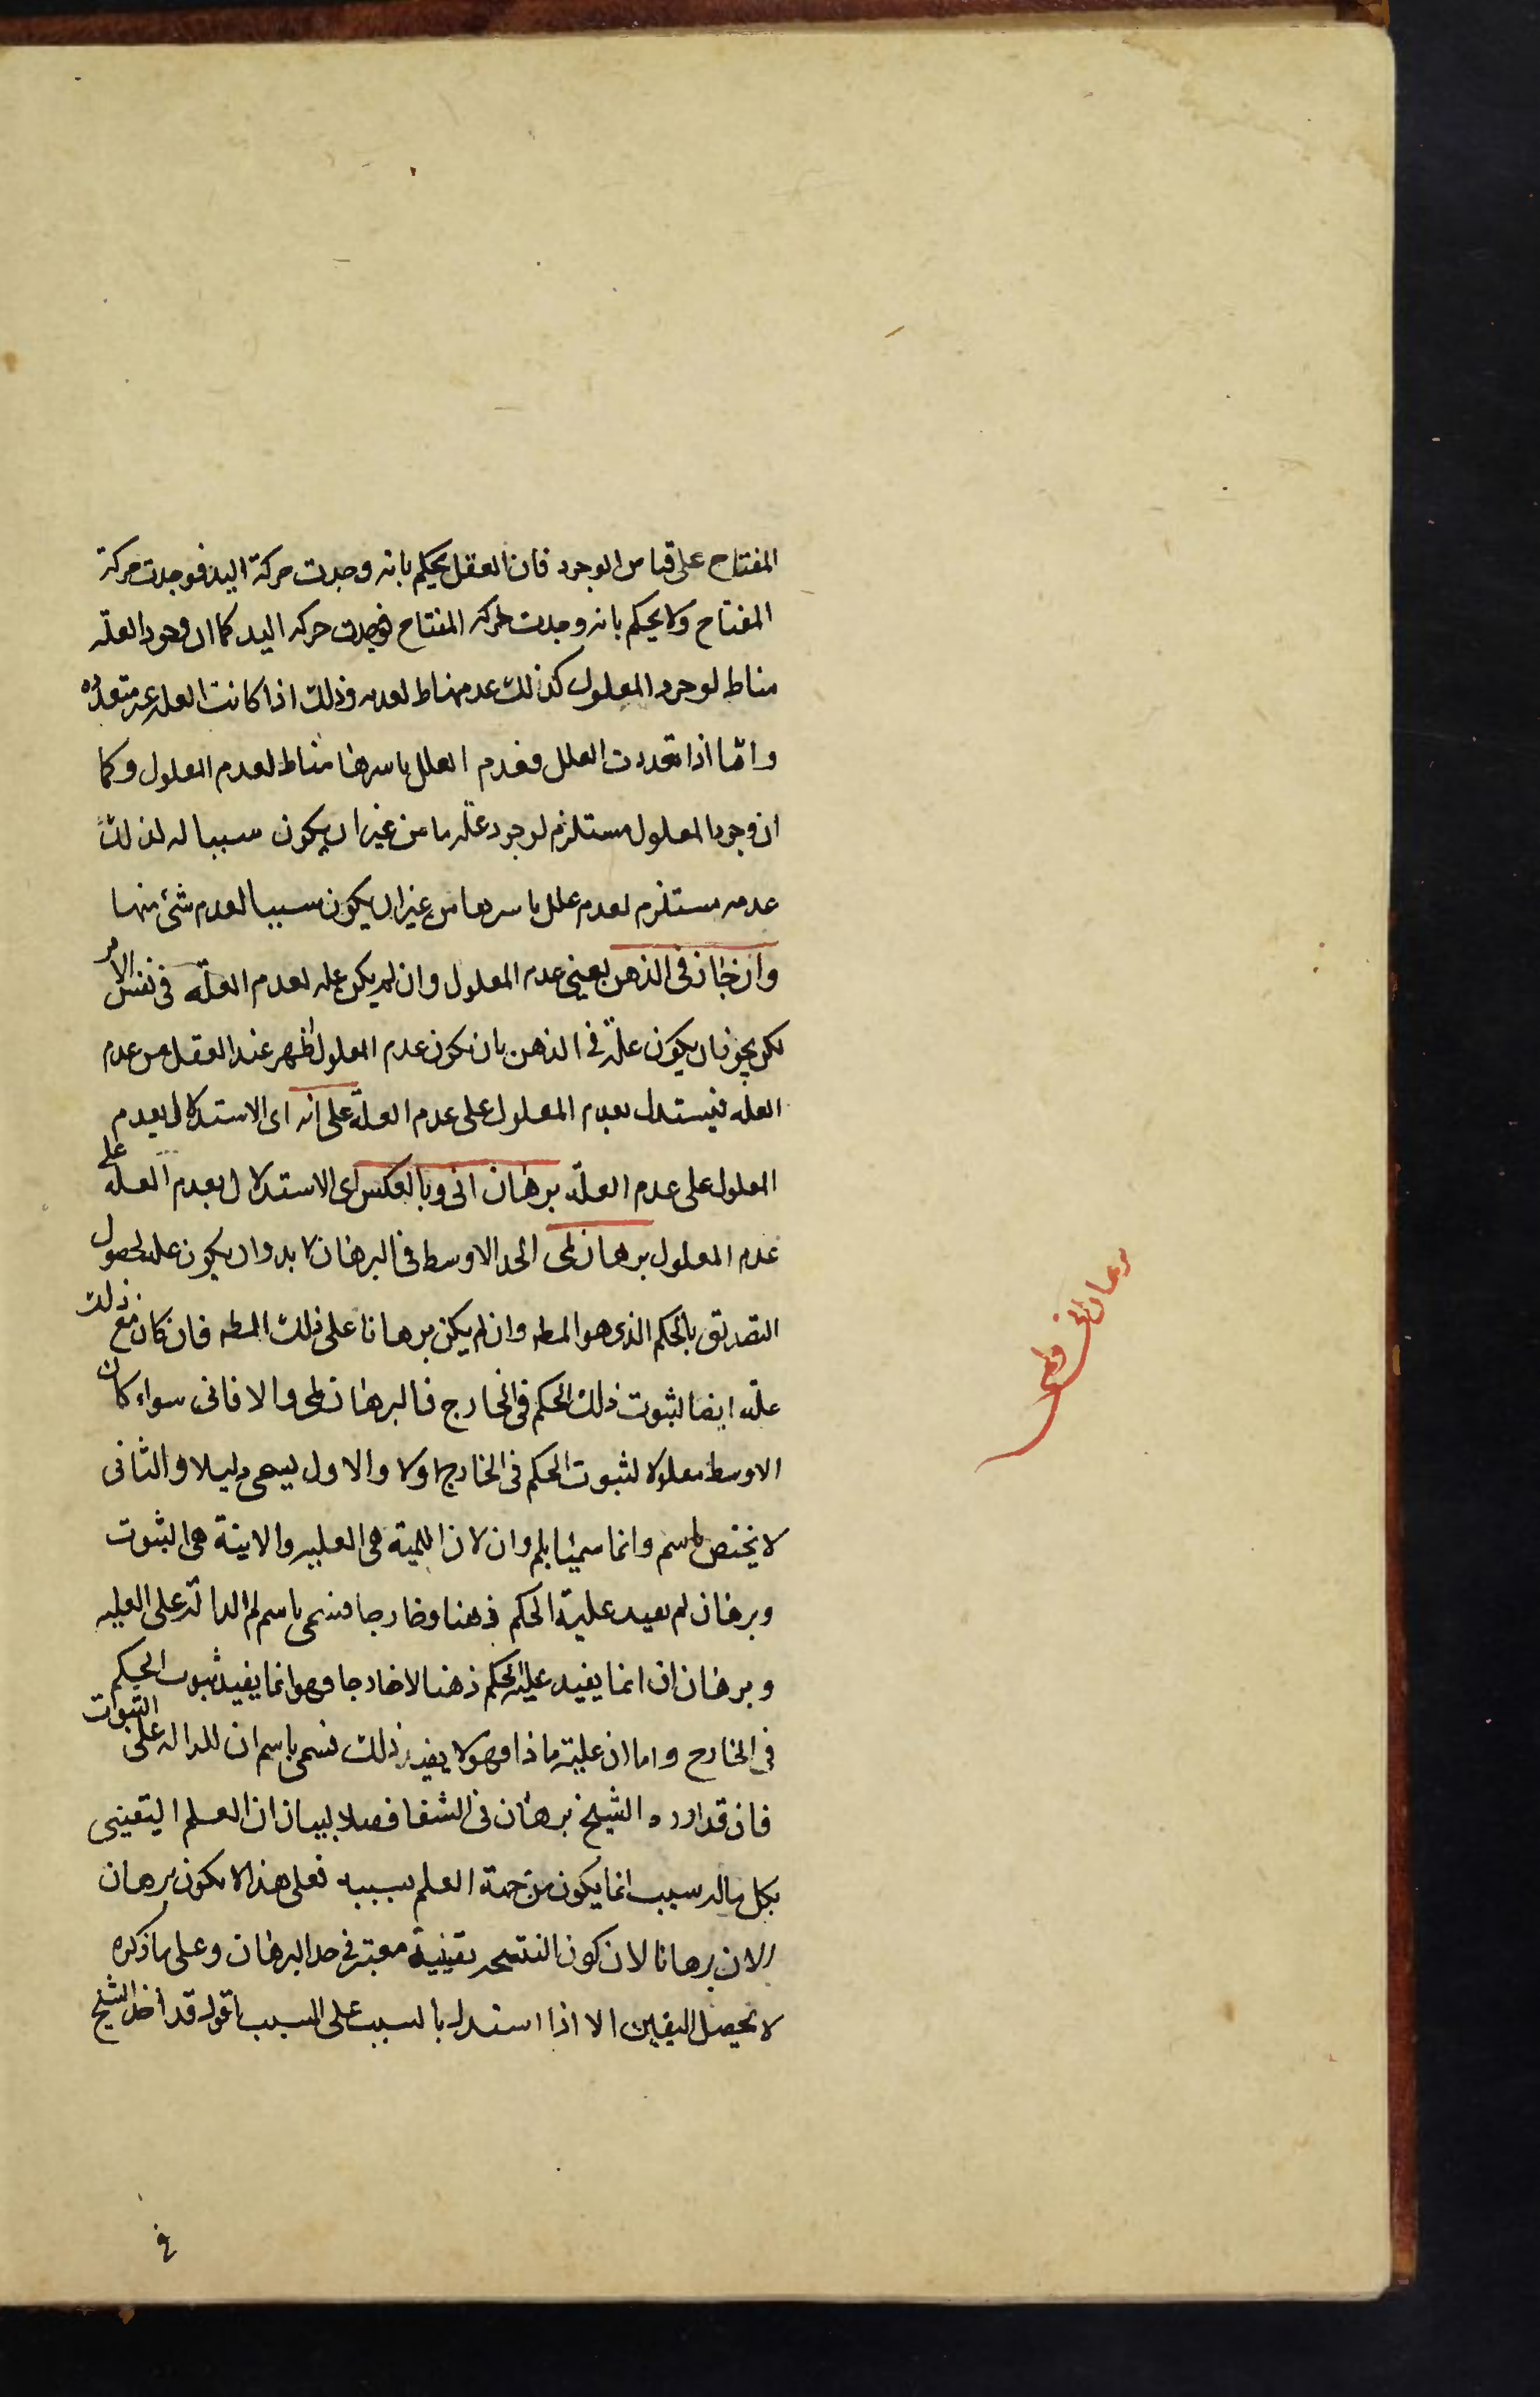 المفتاح على قياس الوجود فان العقل يحكم بانه وجدت حركة اليد فوجدت حركة
المفتاح ولا يحكم بانه وجدت حركه المفتاح فوجدت حركه اليد كما ان وجود العله
مناط لوجود المعلول كذلك عدمها مناط لعدمه وذلك اذا كانت العله غير متعدده
واما اذا تعددت العلل فعدم العلل باسرها مناط لعدم المعلول وكما
ان وجود المعلول مستلزم لوجود علّه ما من غير ان يكون سببا له كذلك
عدمه مستلزم لعدم علل باسرها من غير ان يكون سببا لعدم شئ منها
وان جاز فى الذهن يعنى عدم المعلول وان لم يكن عله لعدم العلّه فى نفس الامر
لكن يجوز ان يكون علة فى الذهن بان يكون عدم المعلول اظهر عند العقل من عدم
العله فيستدل بعدم المعلول على عدم العلة على انه اى الاستدلال بعدم
المعلول على عدم العلّه برهان انى وبالعكس اى الاستدلال بعدم العله على
عدم المعلول برهان لمى الحد الاوسط فى البرهان لا بد وان يكون عله لحصول
التصديق بالحكم الذى هو المط وان لم يكن برهانا على ذلك المط فان كان مع ذلك
علّه ايضا لثبوت ذلك الحكم فى الخارج فالبرهان لمى والا فانى سواء كان
الاوسط معلولا لثبوت الحكم فى الخارج اولا والاول يسمى دليلا والثانى
لا يختص باسم وانما سميا بلم وان لان اللمية هى العليه والانية هى الثبوت
وبرهان لم يفيد علية الحكم ذهنا وخارجا فسمى باسم لم الدالة على العليه
وبرهان ان انما يفيد علية الحكم ذهنا لا خارجا وهو انما يفيد ثبوت الحكم
فى الخارج واما ان عليته ماذا فهو لا يفيد ذلك فسمى باسم ان للدالة على الثبوت
فان قد اورد الشيخ برهان فى الشفا فصلا لبيان ان العلم اليقينى
بكل ماله سبب انما يكون من جهة العلم بسببه فعلى هذا لا يكون برهان
الان برهانا لان كون النتيجه يقينية معتبر فى حد البرهان وعلى ما ذكره
لا يحصل اليقين الا اذا استدل بالسبب على المسبب اقول قد اخذ الشيخ
برهان انى ولمى